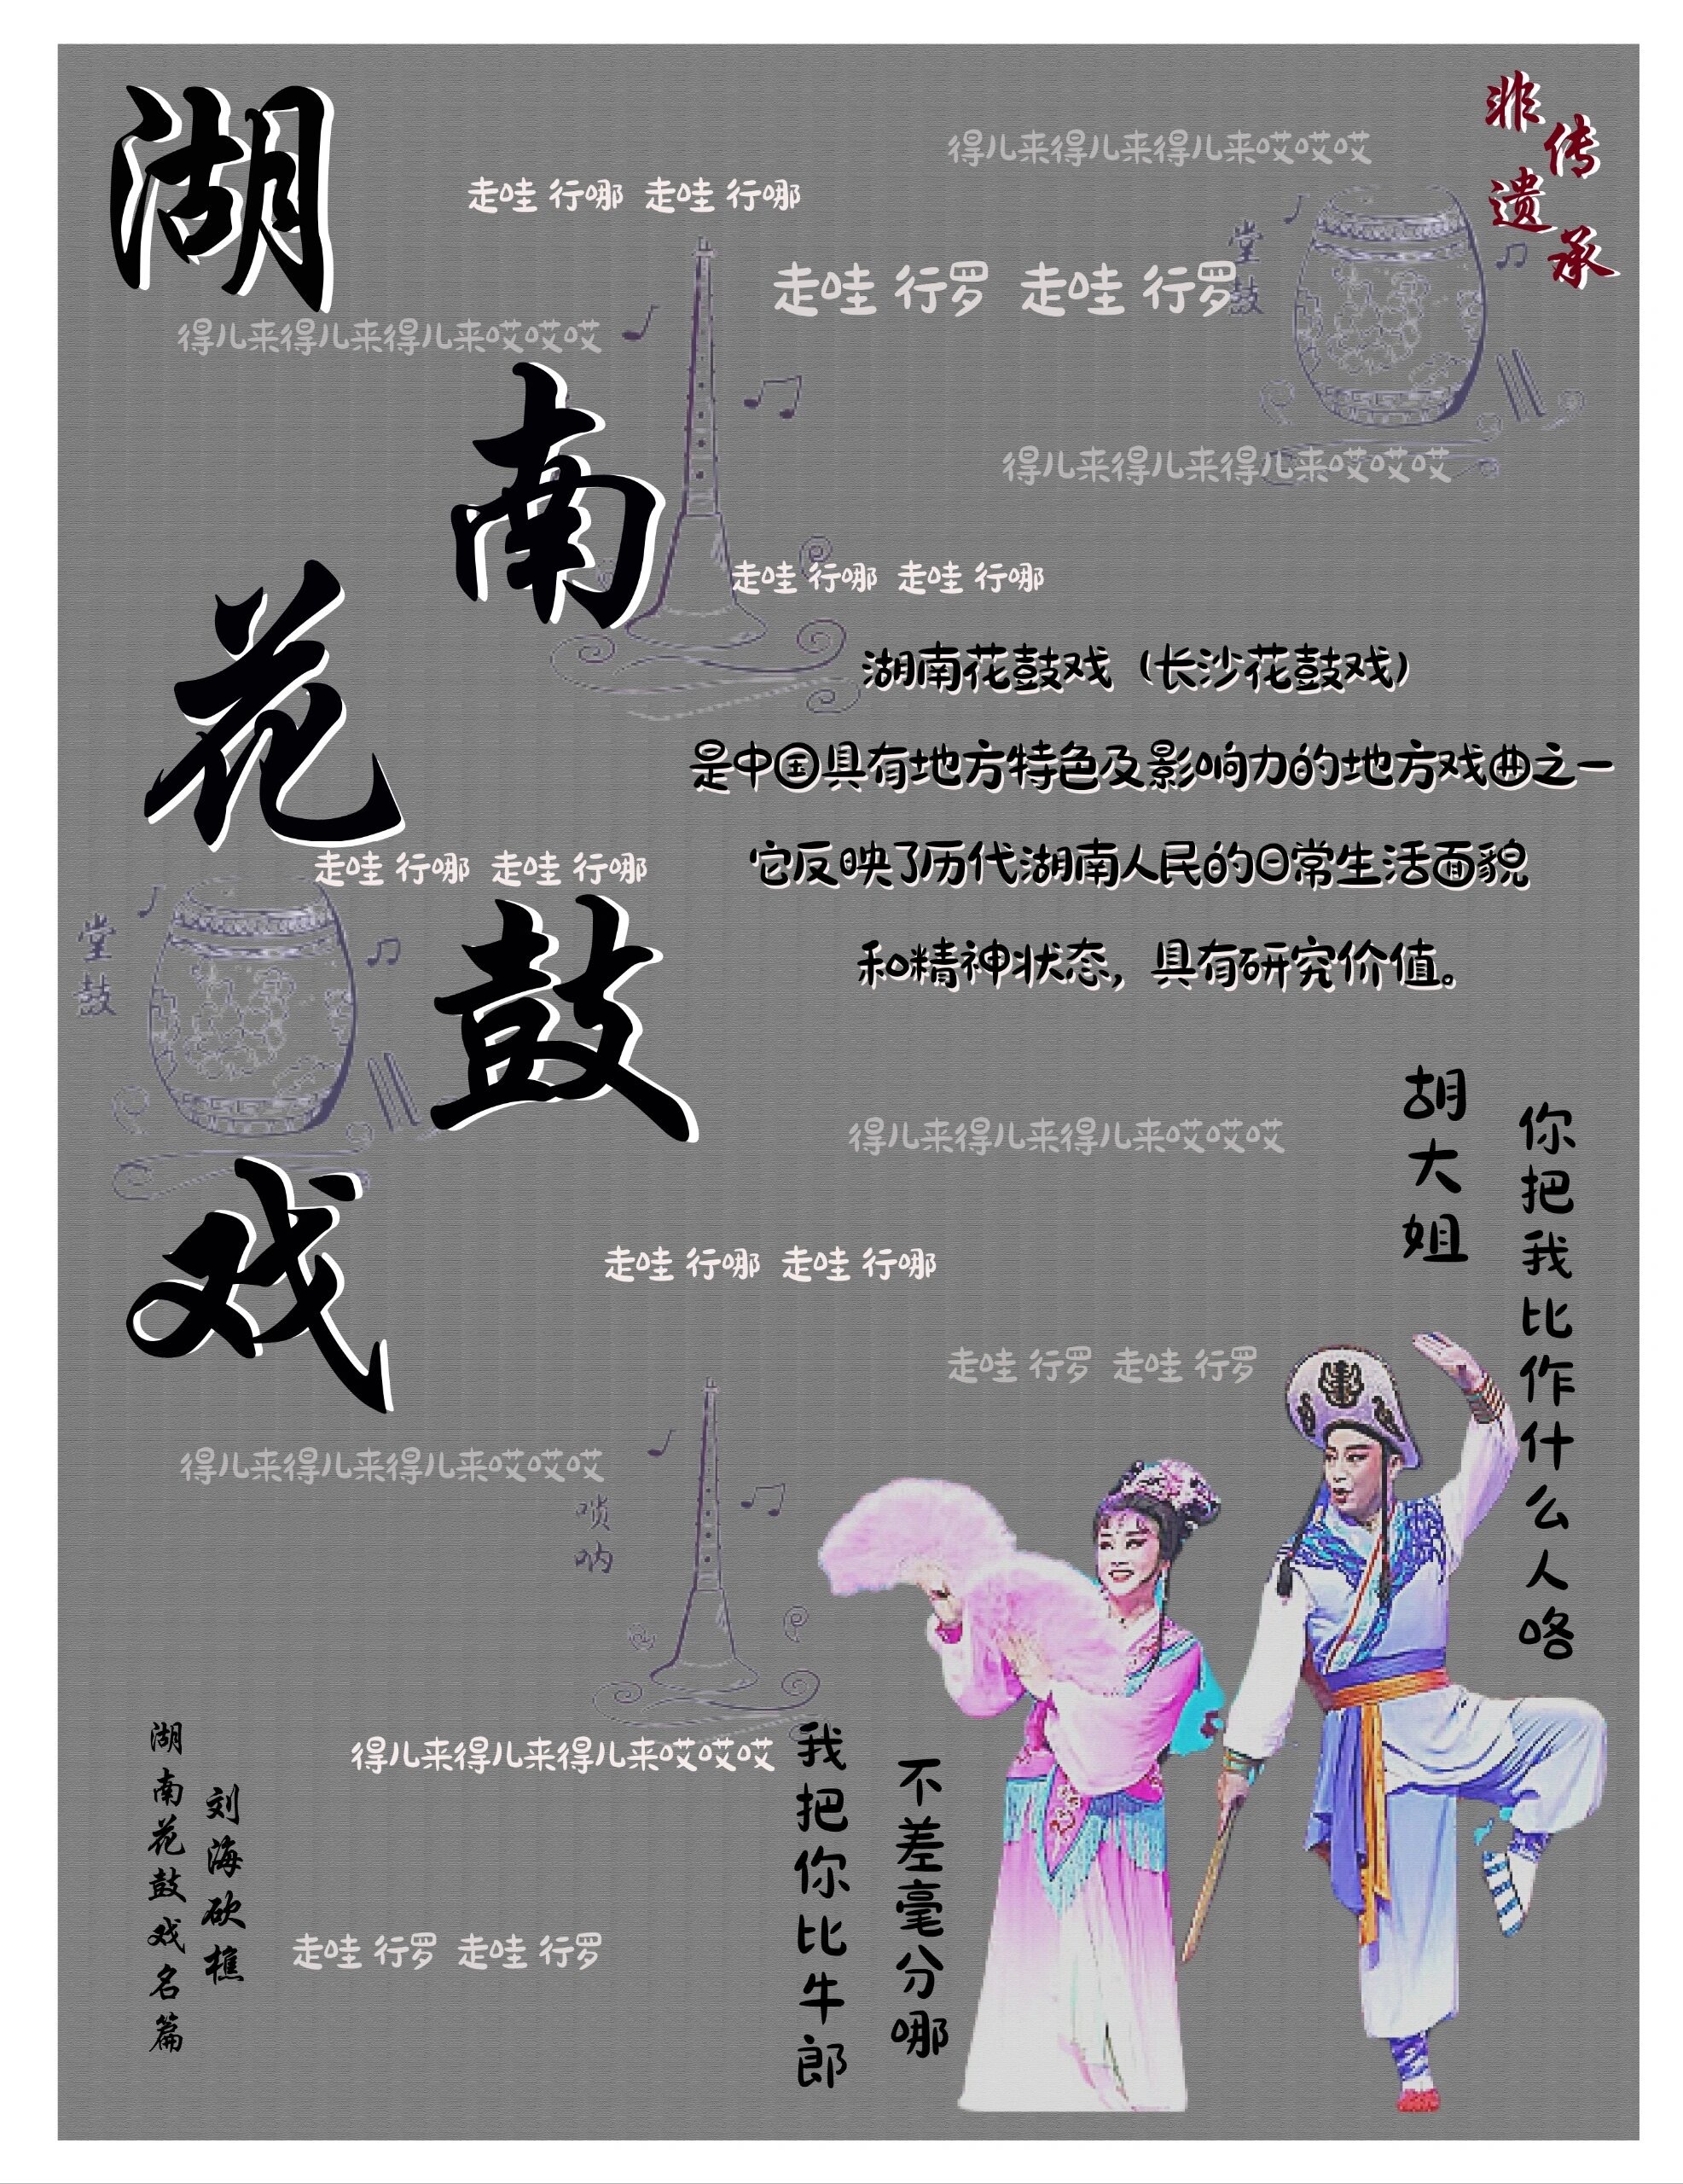 湖南花鼓戏
非遗传承
得儿来得儿来得儿来哎哎哎
走哇 行哪 走哇 行哪
走哇 行罗 走哇 行罗
堂鼓
得儿来得儿来得儿来哎哎哎
得儿来得儿来得儿来哎哎哎
走哇 行哪 走哇 行哪
湖南花鼓戏（长沙花鼓戏）
是中国具有地方特色及影响力的地方戏曲之一
它反映了历代湖南人民的日常生活面貌
和精神状态，具有研究价值。
走哇 行哪 走哇 行哪
堂鼓
得儿来得儿来得儿来哎哎哎
胡大姐
你把我比作什么人咯
走哇 行哪 走哇 行哪
走哇 行罗 走哇 行罗
得儿来得儿来得儿来哎哎哎
唢呐
得儿来得儿来得儿来哎哎哎
我把你比牛郎
不差毫分哪
湖南花鼓戏名篇
刘海砍樵
走哇 行罗 走哇 行罗